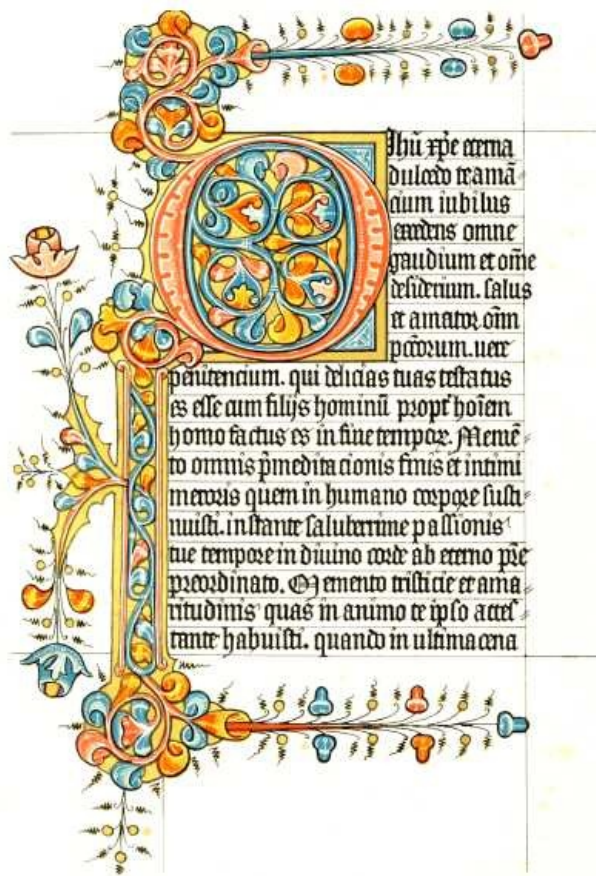 O Jhū xp̄e eterna
dulcedo te amā
cium iubilus
excedens omne
gaudium et om̄e
desiderium. salus
et amator om̄
pc̄corum. uere
penitencium. qui delicias tuas testatus
es esse cum filijs hominū propt̄ hoi̅em
homo factus es in fine tempor. Memē
to omnis p̄meditacionis finis et intimi
meroris quem in humano corpore susti
nuisti. instante saluberrime passionis
tue tempore in diuino corde ab eterno pr̄e
preordinato. Memento tristicie et ama
ritudinis quas in animo te ipso attes
tante habuisti. quando in ultima cena